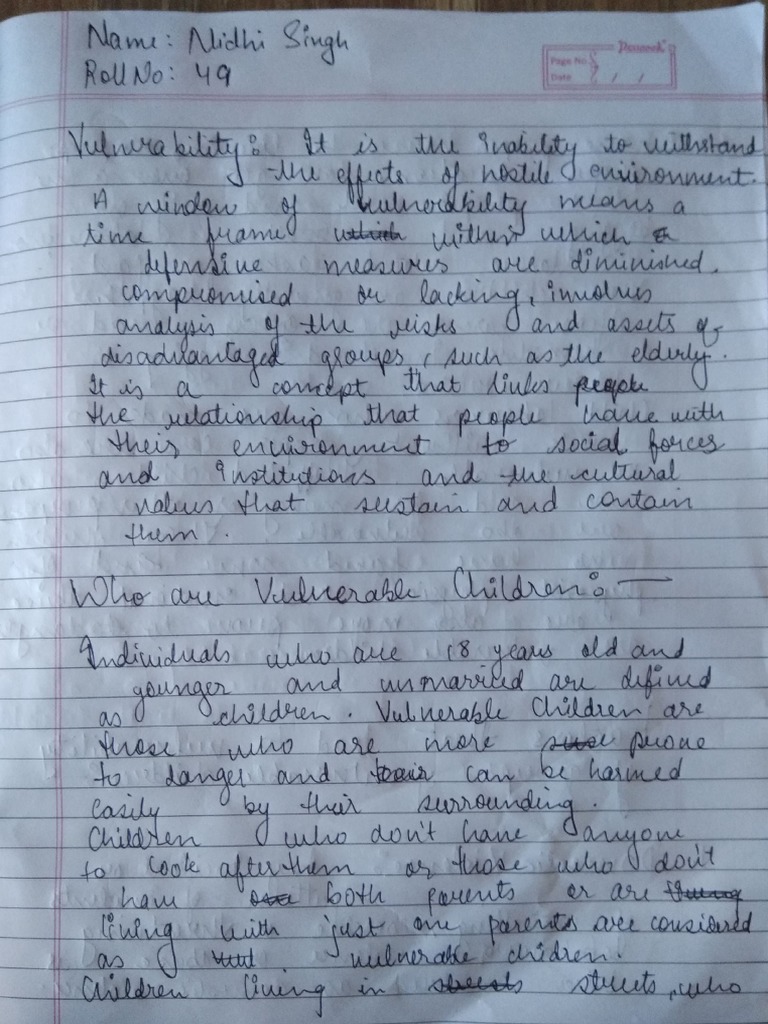 Name: Nidhi Singh
Roll No: 49
Page No.
Date
Vulnurability: It is the inability to withstand
the effects of hostile environment.
A window of vulnerability means a
time frame which within which a
defensive measures are diminished,
compromised or lacking, involves
analysis of the risks and assets of
disadvantaged groups, such as the elderly.
It is a concept that links people
the relationship that people have with
their environment to social forces
and institutions and the cultural
values that sustain and contain
them.
Who are Vulnerable Children: —
Individuals who are 18 years old and
younger and unmarried are defined
as children. Vulnerable Children are
those who are more prone
to danger and can be harmed
easily by their surrounding.
Children who don't have anyone
to look after them or those who don't
have both parents or are
living with just one parents are considered
as vulnerable chidren.
Children living in streets streets, who